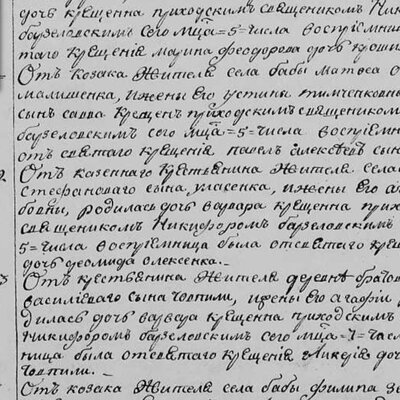 дочъ крещенна приходскимъ священикомъ Ник
барзеловскимъ сего мца=5=числа воспріемни
таго крещенія марина феодорова дочъ
Отъ козака жителя села бабы матвея
малишенка, ижены его устины тимченковны
сынъ савва крещенъ приходскимъ священикомъ
барзеловскимъ сого мца=5=числа воспріемн
отъ святаго крещенія павелъ алексѣевъ сын
Отъ казеннаго крестьянина жителя села
стефановаго сына, ижены его
родиласъ дочъ варвара крещенна прихо
священикомъ Никифоромъ барзеловскимъ
5=числа воспріемница была отсвятаго кре
дочъ деомида олексенка.
Отъ крестьянина жителя деревнѣ
василіеваго сына ижены его агафіи
диласъ дочъ варвара крещенна приходскимъ
Никифоромъ барзеловскимъ сего мца=7=числ
ница была отсвятаго крещенія ликерія доч

Отъ козака жителя села бабы филипа